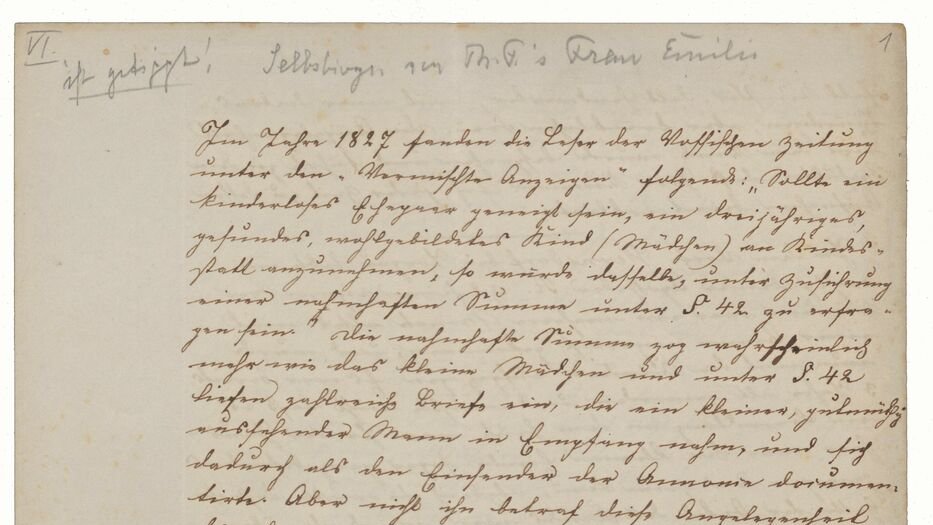 VI.
1
ist getippt!
Selbstbiogr. von Th. F.'s Frau Emilie
Im Jahre 1827 fanden die Leser der Vossischen Zeitung
unter den „Vermischte Anzeigen“ folgende: „Sollte ein
kinderloses Ehepaar geneigt sein, ein dreijähriges,
gesundes, wohlgebildetes Kind (Mädchen) an Kindes-
statt anzunehmen, so würde dasselbe, unter Zuführung
einer nahmhaften Summe unter S. 42. zu erfra-
gen sein.“ Die nahmhafte Summe zog wahrscheinlich
mehr wie das kleine Mädchen und unter S. 42
liefen zahlreiche Briefe ein, die ein kleiner, gutmüthig
aussehender Mann in Empfang nahm, und sich
dadurch als den Einsender der Annonce documen-
tirte. Aber nicht ihn betraf diese Angelegenheit